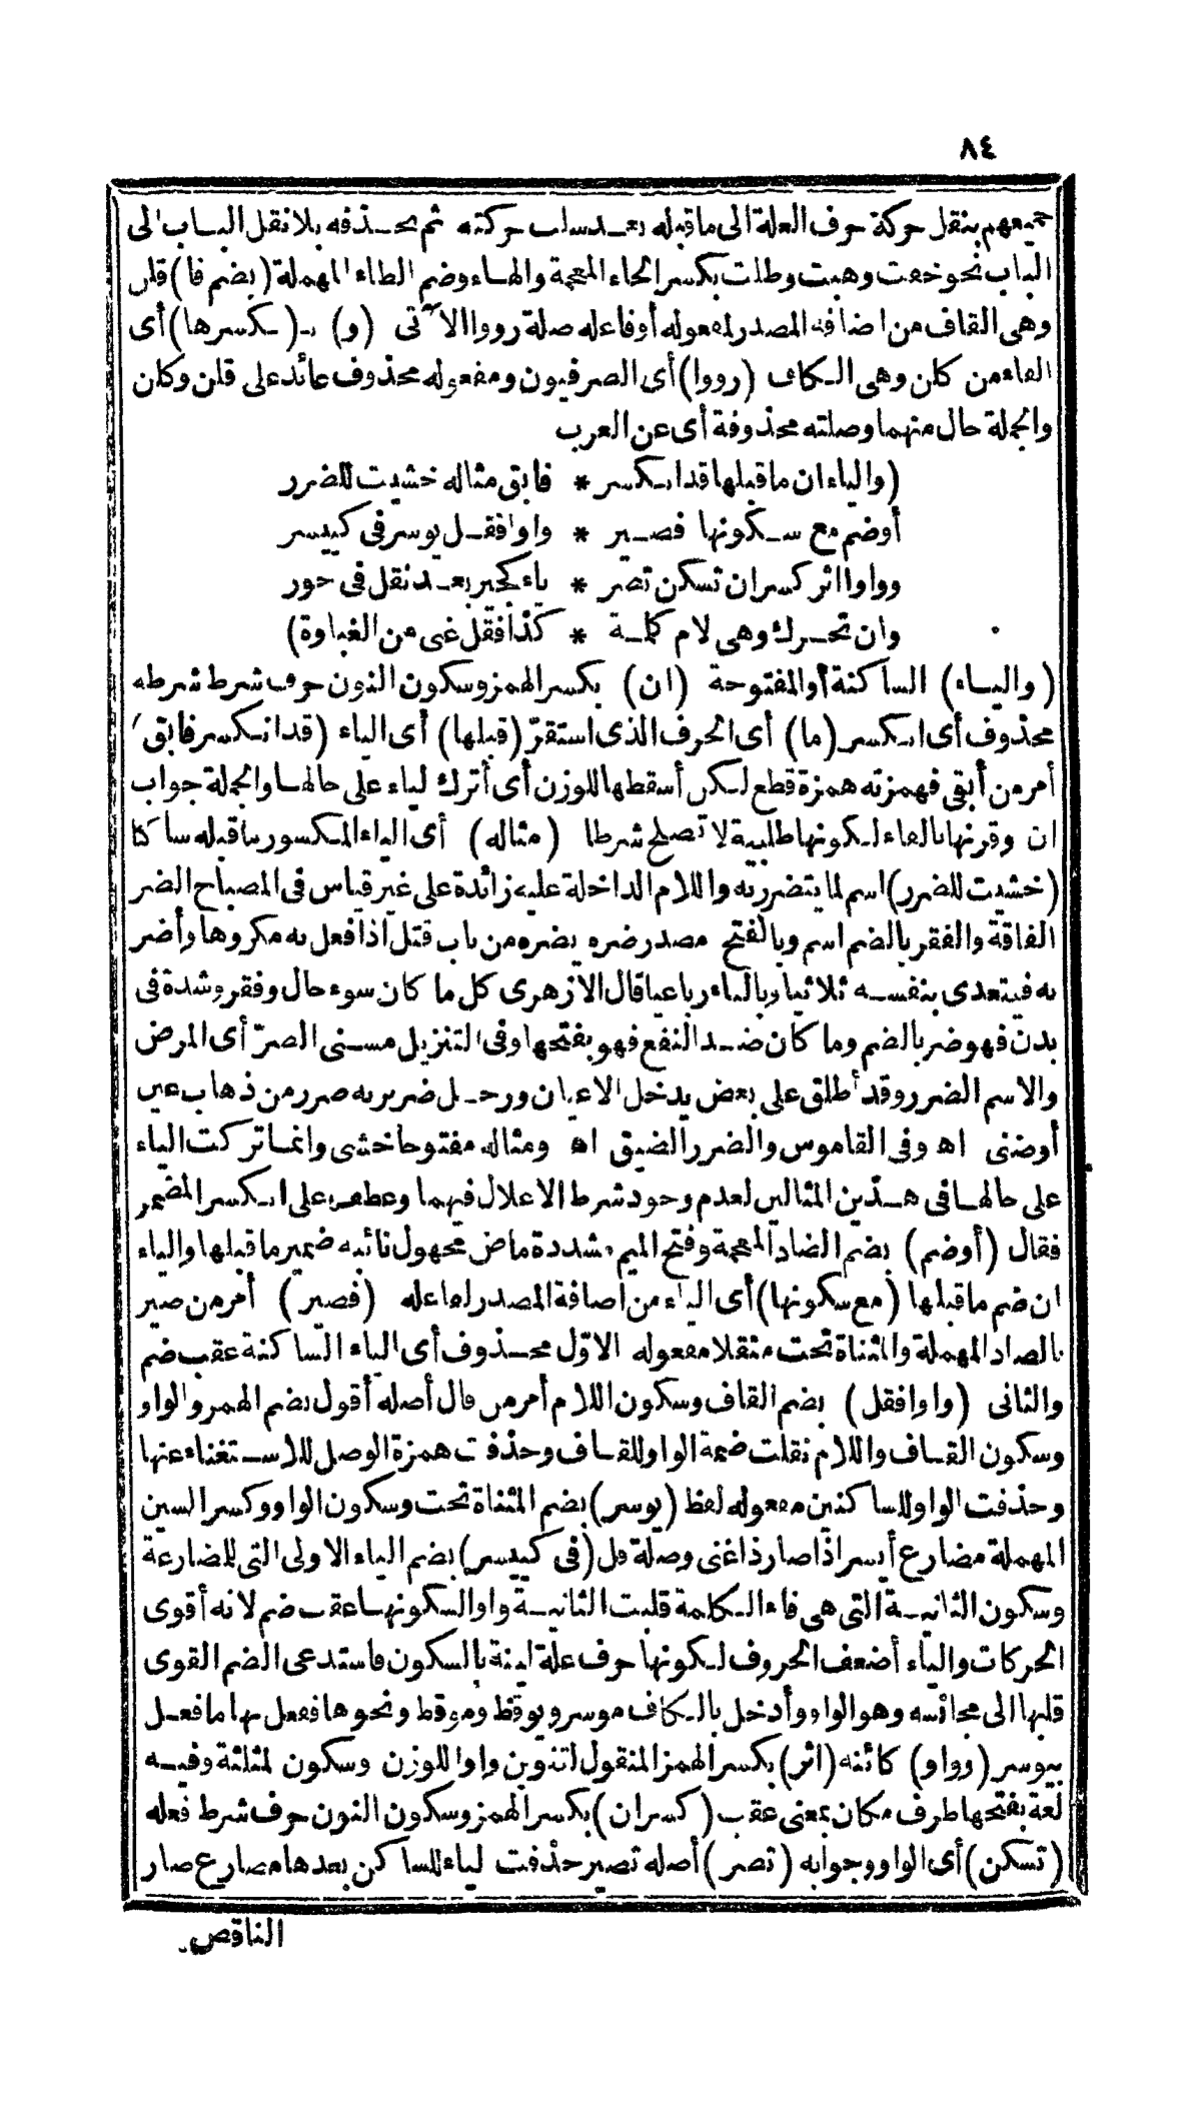 ٨٤
جميعهم بنقل حركة حرف العلة الى ما قبله بعد سلب حركته ثم بحذفه بلا نقل الباب الى
الباب نحو خفت وهبت وطلت بكسر الخاء المعجمة والهاء وضم الطاء المهملة (بضم فا) قلن
وهى القاف من اضافة المصدر لمفعوله أو فاعله صلة رووا الآتى (و) بـ(ـكسرها) أى
الفاء من كان وهى الكاف (رووا) أى الصرفيون ومفعوله محذوف عائد على قلن وكان
والجملة حال منهما وصلته محذوفة أى عن العرب
(والياء ان ما قبلها قد انكسر * فابق مثاله خشيت للضرر
أوضم مع سكونها فصير * واوا فقل يوسر فى كييسر
وواوا اثر كسران تسكن تصر * ياء كجير بعد نقل فى جور
وان تحرك وهى لام كلمة * كذا فقل غبى من الغباوة)
(والياء) الساكنة أو المفتوحة (ان) بكسر الهمز وسكون النون حرف شرط شرطه
محذوف أى انكسر (ما) أى الحرف الذى استقرّ (قبلها) أى الياء (قد انكسر فابق)
أمر من أبقى فهمزته همزة قطع لكن أسقطها للوزن أى أترك الياء على حالها والجملة جواب
ان وقرنها بالفاء لكونها طلبية لا تصلح شرطا (مثاله) أى الياء المكسور ما قبله ساكنا
(خشيت للضرر) اسم لما يتضرر به واللام الداخلة عليه زائدة على غير قياس فى المصباح الضر
الفاقة والفقر بالضم اسم وبالفتح مصدر ضره يضره من باب قتل اذا فعل به مكروها وأضر
به فيتعدى بنفسه ثلاثيا وبالباء رباعيا قال الازهرى كل ما كان سوء حال وفقر وشدة فى
بدن فهو ضر بالضم وما كان ضد النفع فهو بفتحها وفى التنزيل مسنى الضرّ أى المرض
والاسم الضرر وقد أطلق على بعض يدخل الاعيان ورجل ضرير به ضرر من ذهاب عين
أوضنى اه وفى القاموس والضرر الضيق اه ومثاله مفتوحا خشى وانما تركت الياء
على حالها فى هذين المثالين لعدم وجود شرط الاعلال فيهما وعطف على انكسر المضمر
فقال (أوضم) بضم الضاد المعجمة وفتح الميم مشددة ماض مجهول نائبه ضمير ما قبلها والياء
ان ضم ما قبلها (مع سكونها) أى الياء من اضافة المصدر لفاعله (فصير) أمر من صير
بالصاد المهملة والمثناة تحت مثقلا مفعوله الاوّل محذوف أى الياء الساكنة عقب ضم
والثانى (واوا فقل) بضم القاف وسكون اللام أمر من قال أصله أقول بضم الهمز والواو
وسكون القاف واللام نقلت ضمة الواو للقاف وحذفت همزة الوصل للاستغناء عنها
وحذفت الواو للساكنين مفعوله لفظ (يوسر) بضم المثناة تحت وسكون الواو وكسر السين
المهملة مضارع أيسر اذا صار ذا غنى وصلة قل (فى كييسر) بضم الياء الاولى التى للمضارعة
وسكون الثانية التى هى فاء الكلمة قلبت الثانية واوا لسكونها عقب ضم لانه أقوى
الحركات والياء أضعف الحروف لكونها حرف علة لينة بالسكون فاستدعى الضم القوى
قلبها الى مجانسه وهو الواو وأدخل بالكاف موسر ويوقظ وموقظ ونحوها ففعل بها ما فعل
بيوسر (وواو) كائنه (اثر) بكسر الهمز المنقول لتنوين واوا للوزن وسكون المثلثة وفيه
لغة بفتحها ظرف مكان بمعنى عقب (كسران) بكسر الهمز وسكون النون حرف شرط فعله
(تسكن) أى الواو وجوابه (تصر) أصله تصير حذفت الياء للساكن بعدها مضارع صار
الناقص